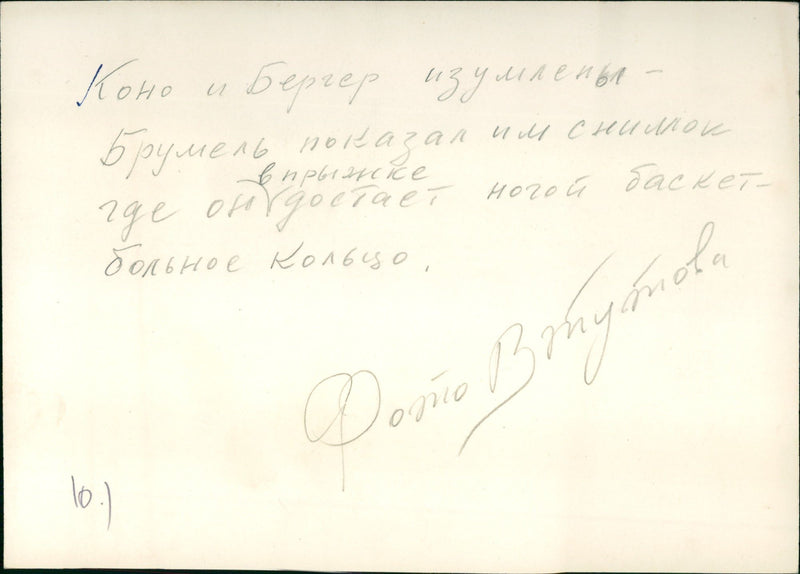 Коно и Бергер изумлены –
Брумель показал им снимок
где он в прыжке достает ногой баскет-
больное кольцо.
Фото В Тутова
10.)